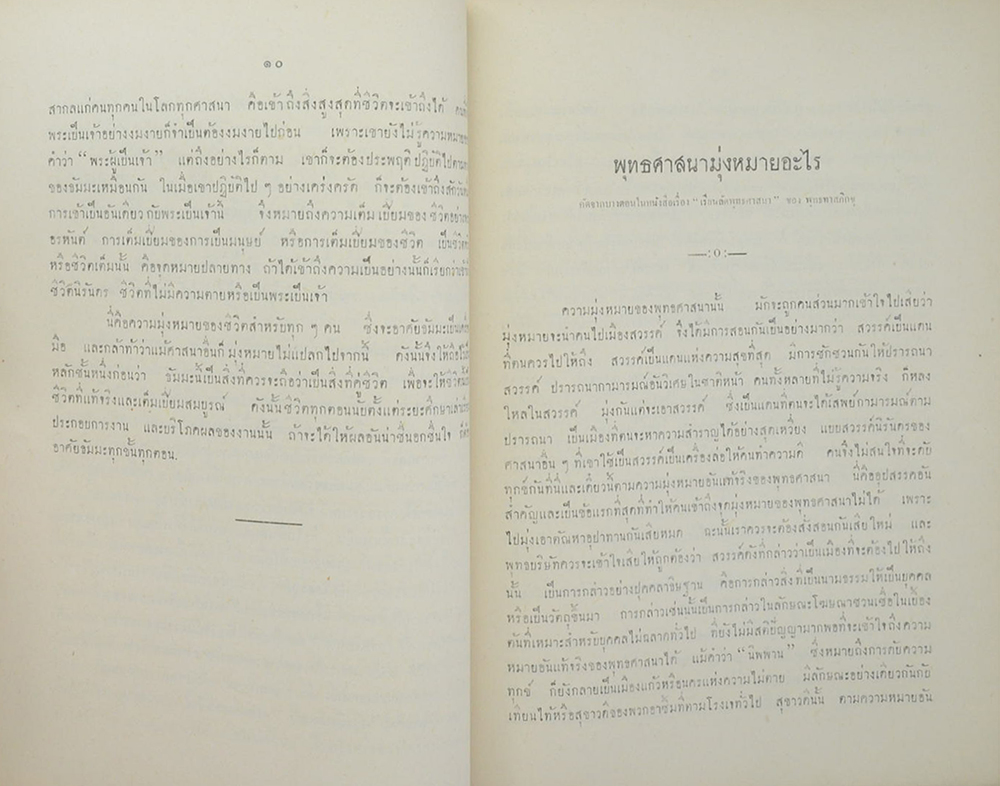 ๑๐
สากลแก่คนทุกคนในโลกทุกศาสนา คือเข้าถึงสิ่งสูงสุดที่ชีวิตจะเข้าถึงได้
พระเป็นเจ้าอย่างงมงายก็จำเป็นต้องงมงายไปก่อน เพราะเขายังไม่รู้ความหมายของ
คำว่า “พระผู้เป็นเจ้า” แต่ถึงอย่างไรก็ตาม เขาก็จะต้องประพฤติปฏิบัติไปตามกฎ
ของธัมมะเหมือนกัน ในเมื่อเขาปฏิบัติไป ๆ อย่างเคร่งครัด ก็จะต้องเข้าถึงสักวันหนึ่ง
การเข้าเป็นอันเดียวกับพระเป็นเจ้านี้ จึงหมายถึงความเต็มเปี่ยมของชีวิตอย่าง
อรหันต์ การเต็มเปี่ยมของการเป็นมนุษย์ หรือการเต็มเปี่ยมของชีวิต เป็นชีวิต
หรือชีวิตเต็มนั้น คือจุดหมายปลายทาง ถ้าได้เข้าถึงความเป็นอย่างนั้นก็เรียกว่า
ชีวิตนิรันดร ชีวิตที่ไม่มีความตายหรือเป็นพระเป็นเจ้า
นี่คือความมุ่งหมายของชีวิตสำหรับทุก ๆ คน ซึ่งจะอาศัยธัมมะเป็นเครื่อง
มือ และกล้าท้าว่าแม้ศาสนาอื่นก็มุ่งหมายไม่แปลกไปจากนี้ ดังนั้นจึงให้ถือเป็น
หลักชั้นหนึ่งก่อนว่า ธัมมะนี้เป็นสิ่งที่ควรจะถือว่าเป็นสิ่งที่คู่ชีวิต เพื่อจะให้ชีวิต
ชีวิตที่แท้จริงและเต็มเปี่ยมสมบูรณ์ ดังนั้นชีวิตทุกตอนนับตั้งแต่ระยะศึกษาเล่าเรียน
ประกอบการงาน และบริโภคผลของงานนั้น ถ้าจะได้ให้ผลอันน่าชื่นอกชื่นใจ ก็ต้อง
อาศัยธัมมะทุกขั้นทุกตอน.
พุทธศาสนามุ่งหมายอะไร
คัดจากบางตอนในหนังสือเรื่อง “เรียนลัดพุทธศาสนา” ของ พุทธทาสภิกขุ
—:๐:—
ความมุ่งหมายของพุทธศาสนานั้น มักจะถูกคนส่วนมากเข้าใจไปเสียว่า
มุ่งหมายจะนำคนไปเมืองสวรรค์ จึงได้มีการสอนกันเป็นอย่างมากว่า สวรรค์เป็นแดน
ที่คนควรไปให้ถึง สวรรค์เป็นแดนแห่งความสุขที่สุด มีการชักชวนกันให้ปรารถนา
สวรรค์ ปรารถนากามารมณ์อันวิเศษในชาติหน้า คนทั้งหลายที่ไม่รู้ความจริง ก็หลง
ใหลในสวรรค์ มุ่งกันแต่จะเอาสวรรค์ ซึ่งเป็นแดนที่ตนจะได้เสพย์กามารมณ์ตาม
ปรารถนา เป็นเมืองที่ตนจะหาความสำราญได้อย่างสุดเหวี่ยง แบบสวรรค์นิรันดรของ
ศาสนาอื่น ๆ ที่เขาใช้เป็นสวรรค์เป็นเครื่องล่อให้คนทำความดี คนจึงไม่สนใจที่จะดับ
ทุกข์กันที่นี่และเดี๋ยวนี้ตามความมุ่งหมายอันแท้จริงของพุทธศาสนา นี่คืออุปสรรคอัน
สำคัญและเป็นข้อแรกที่สุดที่ทำให้คนเข้าถึงจุดมุ่งหมายของพุทธศาสนาไม่ได้ เพราะ
ไปมุ่งเอาตัณหาอุปาทานกันเสียหมด ฉะนั้นเราควรจะต้องสั่งสอนกันเสียใหม่ และ
พุทธบริษัทควรจะเข้าใจเสียให้ถูกต้องว่า สวรรค์ดังที่กล่าวว่าเป็นเมืองที่จะต้องไปให้ถึง
นั้น เป็นการกล่าวอย่างปุคคลาธิษฐาน คือการกล่าวสิ่งที่เป็นนามธรรมให้เป็นบุคคล
หรือเป็นวัตถุขึ้นมา การกล่าวเช่นนั้นเป็นการกล่าวในลักษณะโฆษณาชวนเชื่อในเบื้อง
ต้นที่เหมาะสำหรับบุคคลไม่ฉลาดทั่วไป ที่ยังไม่มีสติปัญญามากพอที่จะเข้าใจถึงความ
หมายอันแท้จริงของพุทธศาสนาได้ แม้คำว่า “นิพพาน” ซึ่งหมายถึงการดับความ
ทุกข์ ก็ยังกลายเป็นเมืองแก้วหรือนครแห่งความไม่ตาย มีลักษณะอย่างเดียวกันกับ
เทียนไท้หรือสุขาวดีของพวกอาซิ้มที่ตามโรงเจทั่วไป สุขาวดีนั้น ตามความหมายอัน